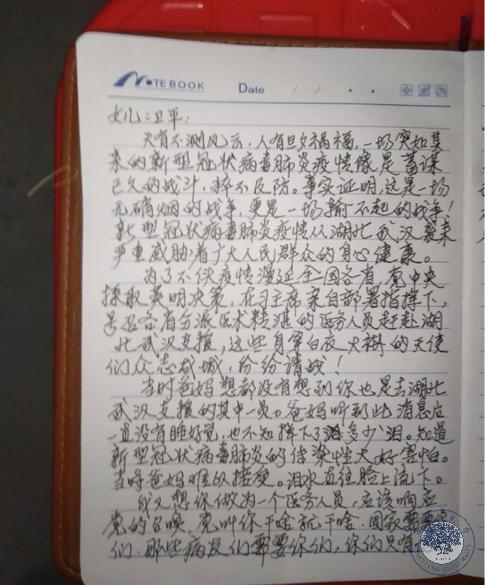 NOTEBOOK
Date
女儿卫平:
天有不测风云,人有旦夕祸福,一场突如其
来的新型冠状病毒肺炎疫情像是蓄谋
已久的战斗,猝不及防。事实证明,这是一场
无硝烟的战争,更是一场输不起的战争!
新型冠状病毒肺炎疫情从湖北武汉袭来
严重威胁着广大人民群众的身心健康。
为了不使疫情漫延全国各省,党中央
採取英明决策,在习主席亲自部署指挥下,
号召各省分派医术精湛的医务人员赶赴湖
北武汉支援,这些身穿白衣大褂的天使
们众志成城,纷纷请战!
当时爸妈想都没有想到你也是去湖北
武汉支援的其中一员。爸妈听到此消息后
一直没有睡好觉,也不知掉下了多少泪。知道
新型冠状病毒肺炎的传染性大好害怕。
当时爸妈难以接受。泪水直往脸上流下。
我又想你做为一个医务人员,应该响应
党的召唤,党叫你干啥就干啥。国家需要
们,那些病友们需要你们,你们只有